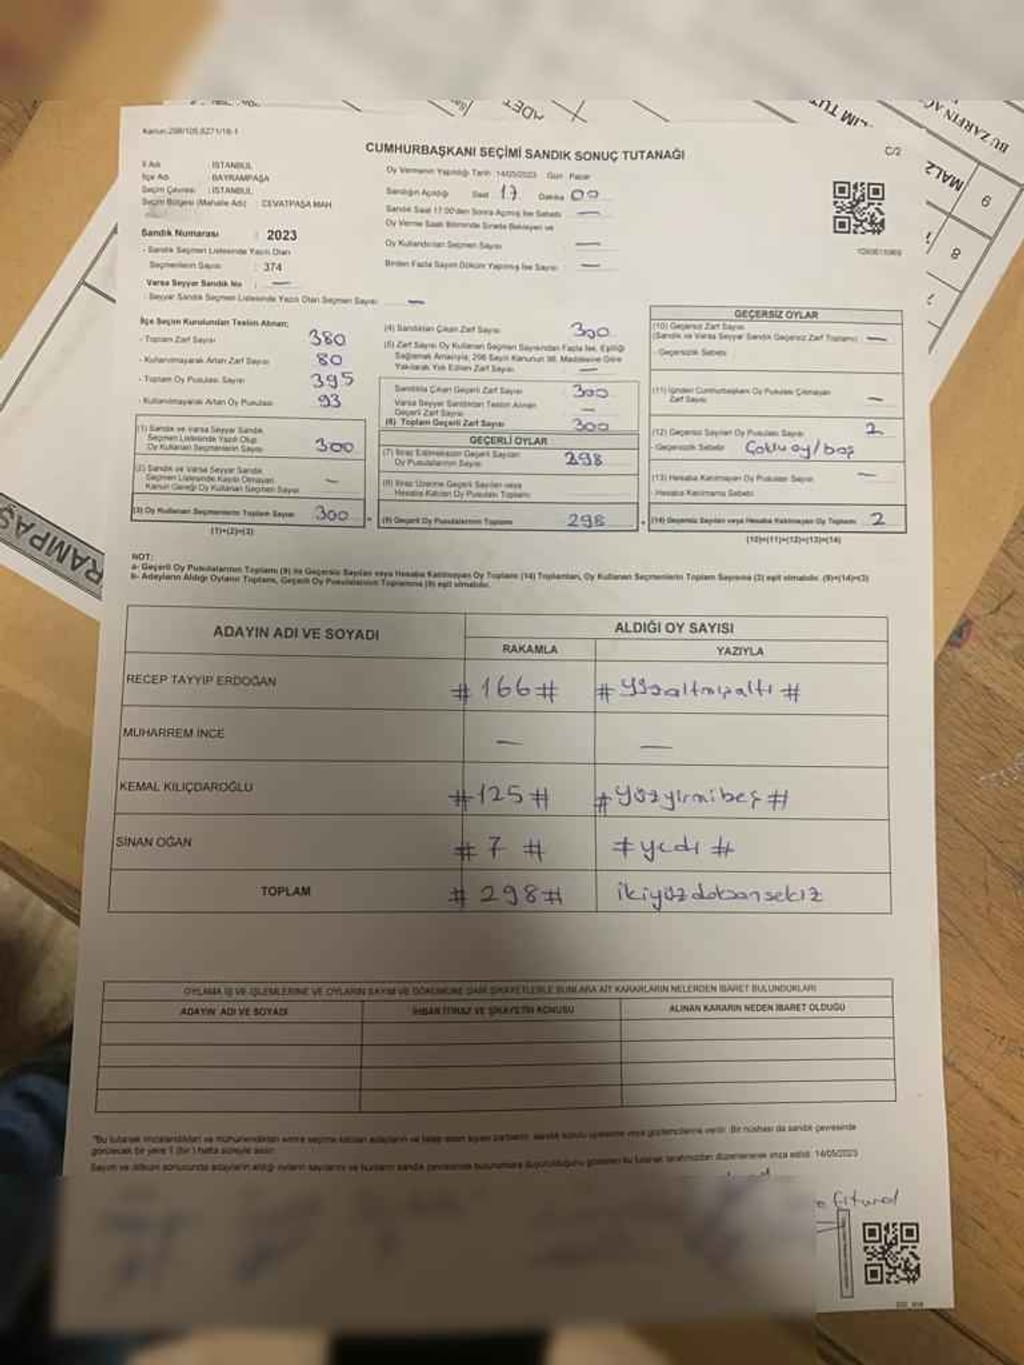 ADET
BU ZARFIN
MAL2
9
8
RAMPAŞ
Kanun:298/105,6271/16-1
CUMHURBAŞKANI SEÇİMİ SANDIK SONUÇ TUTANAĞI
C/2
İl Adı : İSTANBUL
İlçe Adı : BAYRAMPAŞA
Seçim Çevresi : İSTANBUL
Seçim Bölgesi (Mahalle Adı) : CEVATPAŞA MAH
Sandık Numarası : 2023
- Sandık Seçmen Listesinde Yazılı Olan
Seçmenlerin Sayısı : 374
Varsa Seyyar Sandık No : —
- Seyyar Sandık Seçmen Listesinde Yazılı Olan Seçmen Sayısı : —
Oy Vermenin Yapıldığı Tarih :14/05/2023 Gün : Pazar
Sandığın Açıldığı Saat 17 Dakika 00
Sandık Saat 17:00'den Sonra Açılmış İse Sebebi —
Oy Verme Saati Bitiminde Sırada Bekleyen ve
Oy Kullandırılan Seçmen Sayısı —
Birden Fazla Sayım Döküm Yapılmış İse Sayısı —
İlçe Seçim Kurulundan Teslim Alınan;
- Toplam Zarf Sayısı 380
- Kullanılmayarak Artan Zarf Sayısı 80
- Toplam Oy Pusulası Sayısı 395
- Kullanılmayarak Artan Oy Pusulası 93
(1) Sandık ve Varsa Seyyar Sandık
Seçmen Listesinde Yazılı Olup
Oy Kullanan Seçmenlerin Sayısı 300
(2) Sandık ve Varsa Seyyar Sandık
Seçmen Listesinde Kaydı Olmayan
Kanun Gereği Oy Kullanan Seçmen Sayısı —
(3) Oy Kullanan Seçmenlerin Toplam Sayısı 300
(1)+(2)=(3)
(4) Sandıktan Çıkan Zarf Sayısı 300
(5) Zarf Sayısı Oy Kullanan Seçmen Sayısından Fazla İse, Eşitliği
Sağlamak Amacıyla, 298 Sayılı Kanunun 98. Maddesine Göre
Yakılarak Yok Edilen Zarf Sayısı —
Sandıkta Çıkan Geçerli Zarf Sayısı 300
Varsa Seyyar Sandıktan Teslim Alınan
Geçerli Zarf Sayısı —
(6) Toplam Geçerli Zarf Sayısı 300
GEÇERLİ OYLAR
(7) İtiraz Edilmeksizin Geçerli Sayılan
Oy Pusulalarının Sayısı 298
(8) İtiraz Üzerine Geçerli Sayılan veya
Hesaba Katılan Oy Pusulası Toplamı
(9) Geçerli Oy Pusulalarının Toplamı 298
GEÇERSİZ OYLAR
(10) Geçersiz Zarf Sayısı
(Sandık ve Varsa Seyyar Sandık Geçersiz Zarf Toplamı) —
- Geçersizlik Sebebi
(11) İçinden Cumhurbaşkanı Oy Pusulası Çıkmayan
Zarf Sayısı —
(12) Geçersiz Sayılan Oy Pusulası Sayısı 2
- Geçersizlik Sebebi Çoklu oy/boş
(13) Hesaba Katılmayan Oy Pusulası Sayısı —
- Hesaba Katılmama Sebebi
(14) Geçersiz Sayılan veya Hesaba Katılmayan Oy Toplamı 2
(10)+(11)+(12)+(13)=(14)
NOT:
a- Geçerli Oy Pusulalarının Toplamı (9) ile Geçersiz Sayılan veya Hesaba Katılmayan Oy Toplamı (14) Toplamları, Oy Kullanan Seçmenlerin Toplam Sayısına (3) eşit olmalıdır. (9)+(14)=(3)
b- Adayların Aldığı Oyların Toplamı, Geçerli Oy Pusulalarının Toplamına (9) eşit olmalıdır.
ADAYIN ADI VE SOYADI
ALDIĞI OY SAYISI
RAKAMLA YAZIYLA
RECEP TAYYİP ERDOĞAN # 166 # # Yüzaltmışaltı #
MUHARREM İNCE — —
KEMAL KILIÇDAROĞLU # 125 # # Yüzyirmibeş #
SİNAN OĞAN # 7 # # yedi #
TOPLAM # 298 # ikiyüzdoksansekiz
OYLAMA İŞ VE İŞLEMLERİNE VE OYLARIN SAYIM VE DÖKÜMÜNE DAİR ŞİKAYETLERLE BUNLARA AİT KARARLARIN NELERDEN İBARET BULUNDUKLARI
ADAYIN ADI VE SOYADI
İHBAR İTİRAZ VE ŞİKAYETİN KONUSU
ALINAN KARARIN NEDEN İBARET OLDUĞU
"Bu tutanak imzalandıktan ve mühürlendikten sonra seçime katılan adayların ve talep eden siyasi partilerin sandık kurulu üyelerine veya gözlemcilerine verilir. Bir nüshası da sandık çevresinde
görülecek bir yere 1 (bir) hafta süreyle asılır.
14/05/2023